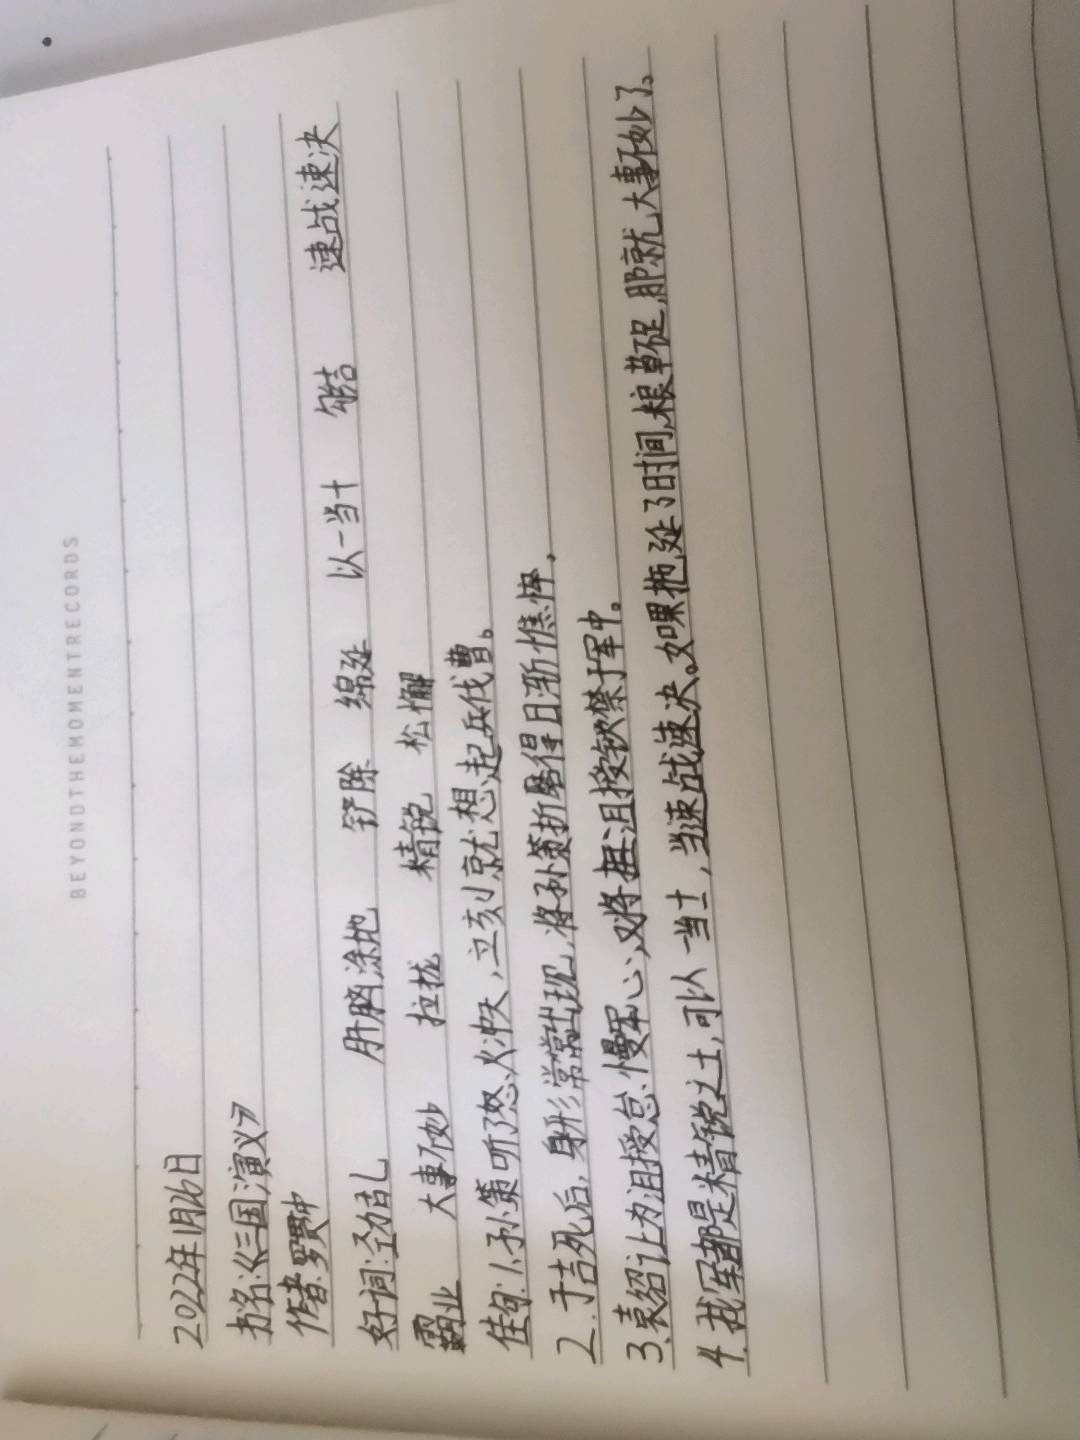 BEYONDTHEMOMENTRECORDS
2022年1月26日
书名:《三国演义》
作者:罗贯中
好词:动乱 肝脑涂地 铲除 绵延 以一当十 勾结 速战速决
霸业 大事不妙 拉拢 精锐 松懈
佳句:1、孙策听了怒火冲天,立刻就想起兵伐曹。
2.于吉死后,身形常常出现,将孙策折磨得日渐憔悴,
3.袁绍认为沮授怠慢军心,又将沮授锁禁于军中。
4.我军都是精锐之士,可以一当十,当速战速决。如果拖延了时间,粮草不足,那就大事不妙了。